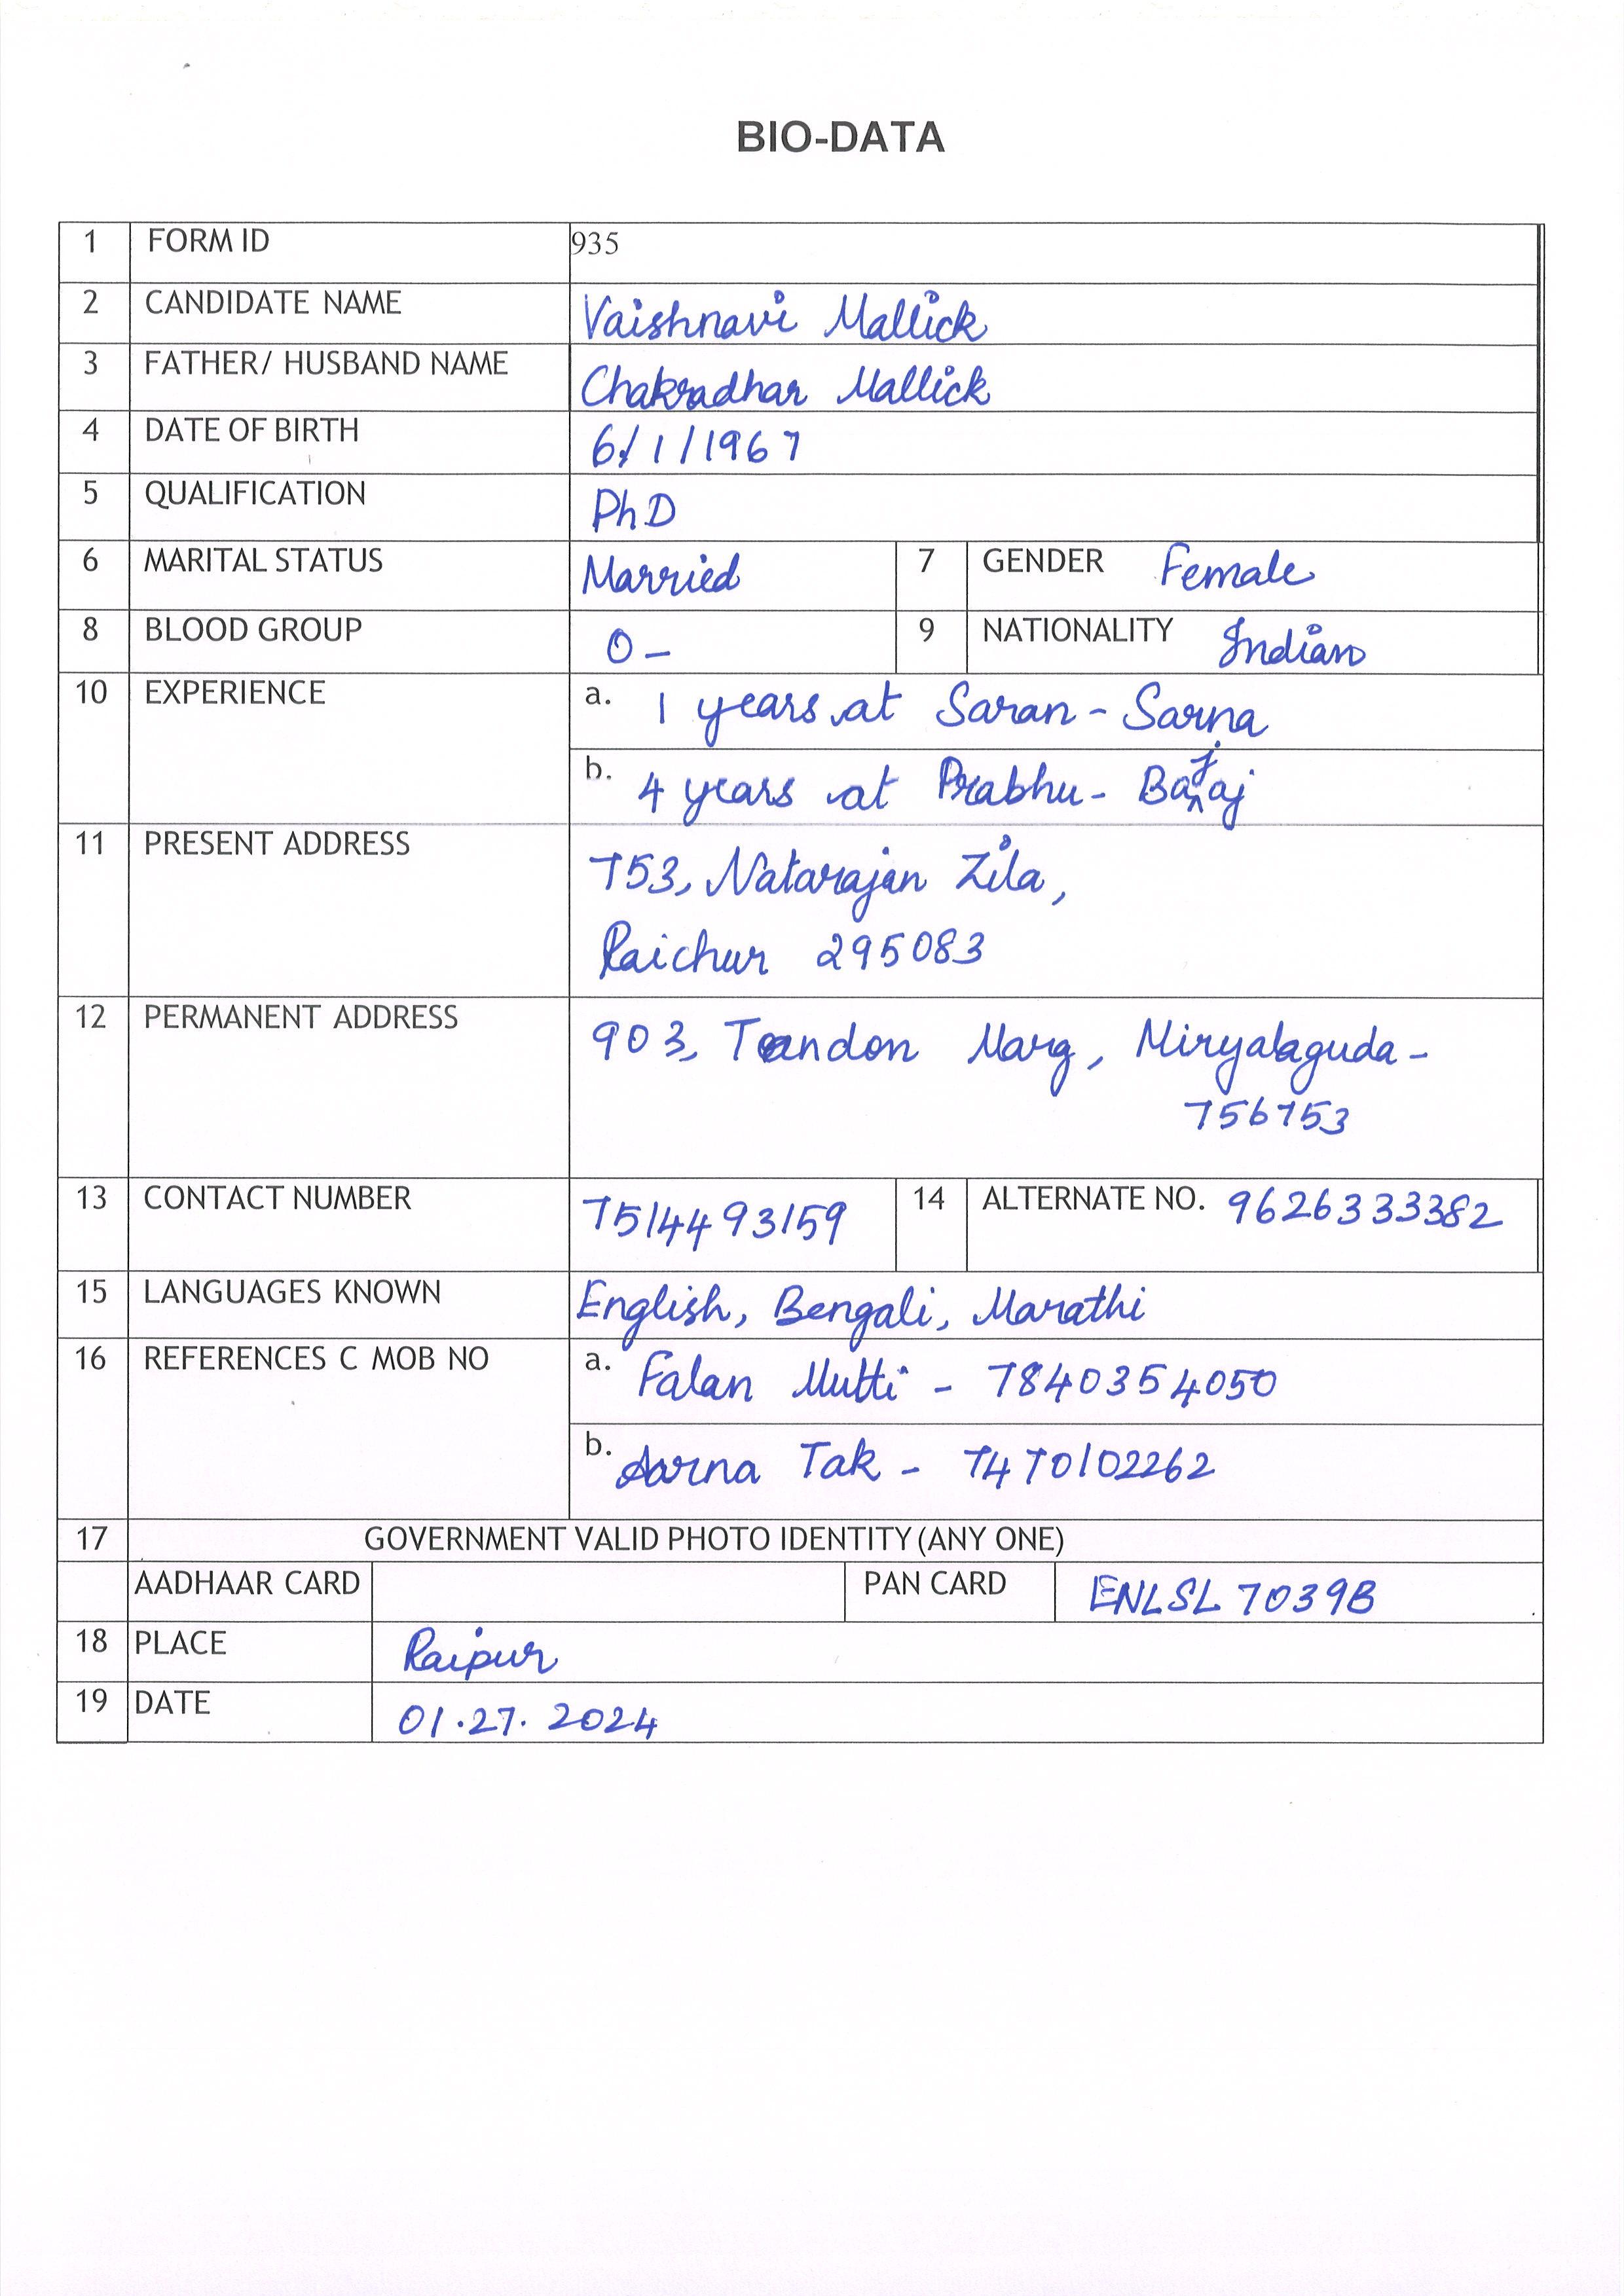 BIO-DATA
1 FORM ID 935
2 CANDIDATE NAME Vaishnavi Mallick
3 FATHER/ HUSBAND NAME Chakradhar Mallick
4 DATE OF BIRTH 6/1/1967
5 QUALIFICATION PhD
6 MARITAL STATUS Married 7 GENDER Female
8 BLOOD GROUP O- 9 NATIONALITY Indian
10 EXPERIENCE a. 1 years at Saran - Sarna
b. 4 years at Prabhu - Bajaj
11 PRESENT ADDRESS 753, Natarajan Zila,
Raichur 295083
12 PERMANENT ADDRESS 903, Tandon Marg, Miryalaguda -
756753
13 CONTACT NUMBER 7514493159 14 ALTERNATE NO. 9626333382
15 LANGUAGES KNOWN English, Bengali, Marathi
16 REFERENCES C MOB NO a. Falan Mutti - 7840354050
b. Aarna Tak - 7470102262
17 GOVERNMENT VALID PHOTO IDENTITY (ANY ONE)
AADHAAR CARD PAN CARD ENLSL7039B
18 PLACE Raipur
19 DATE 01.27.2024